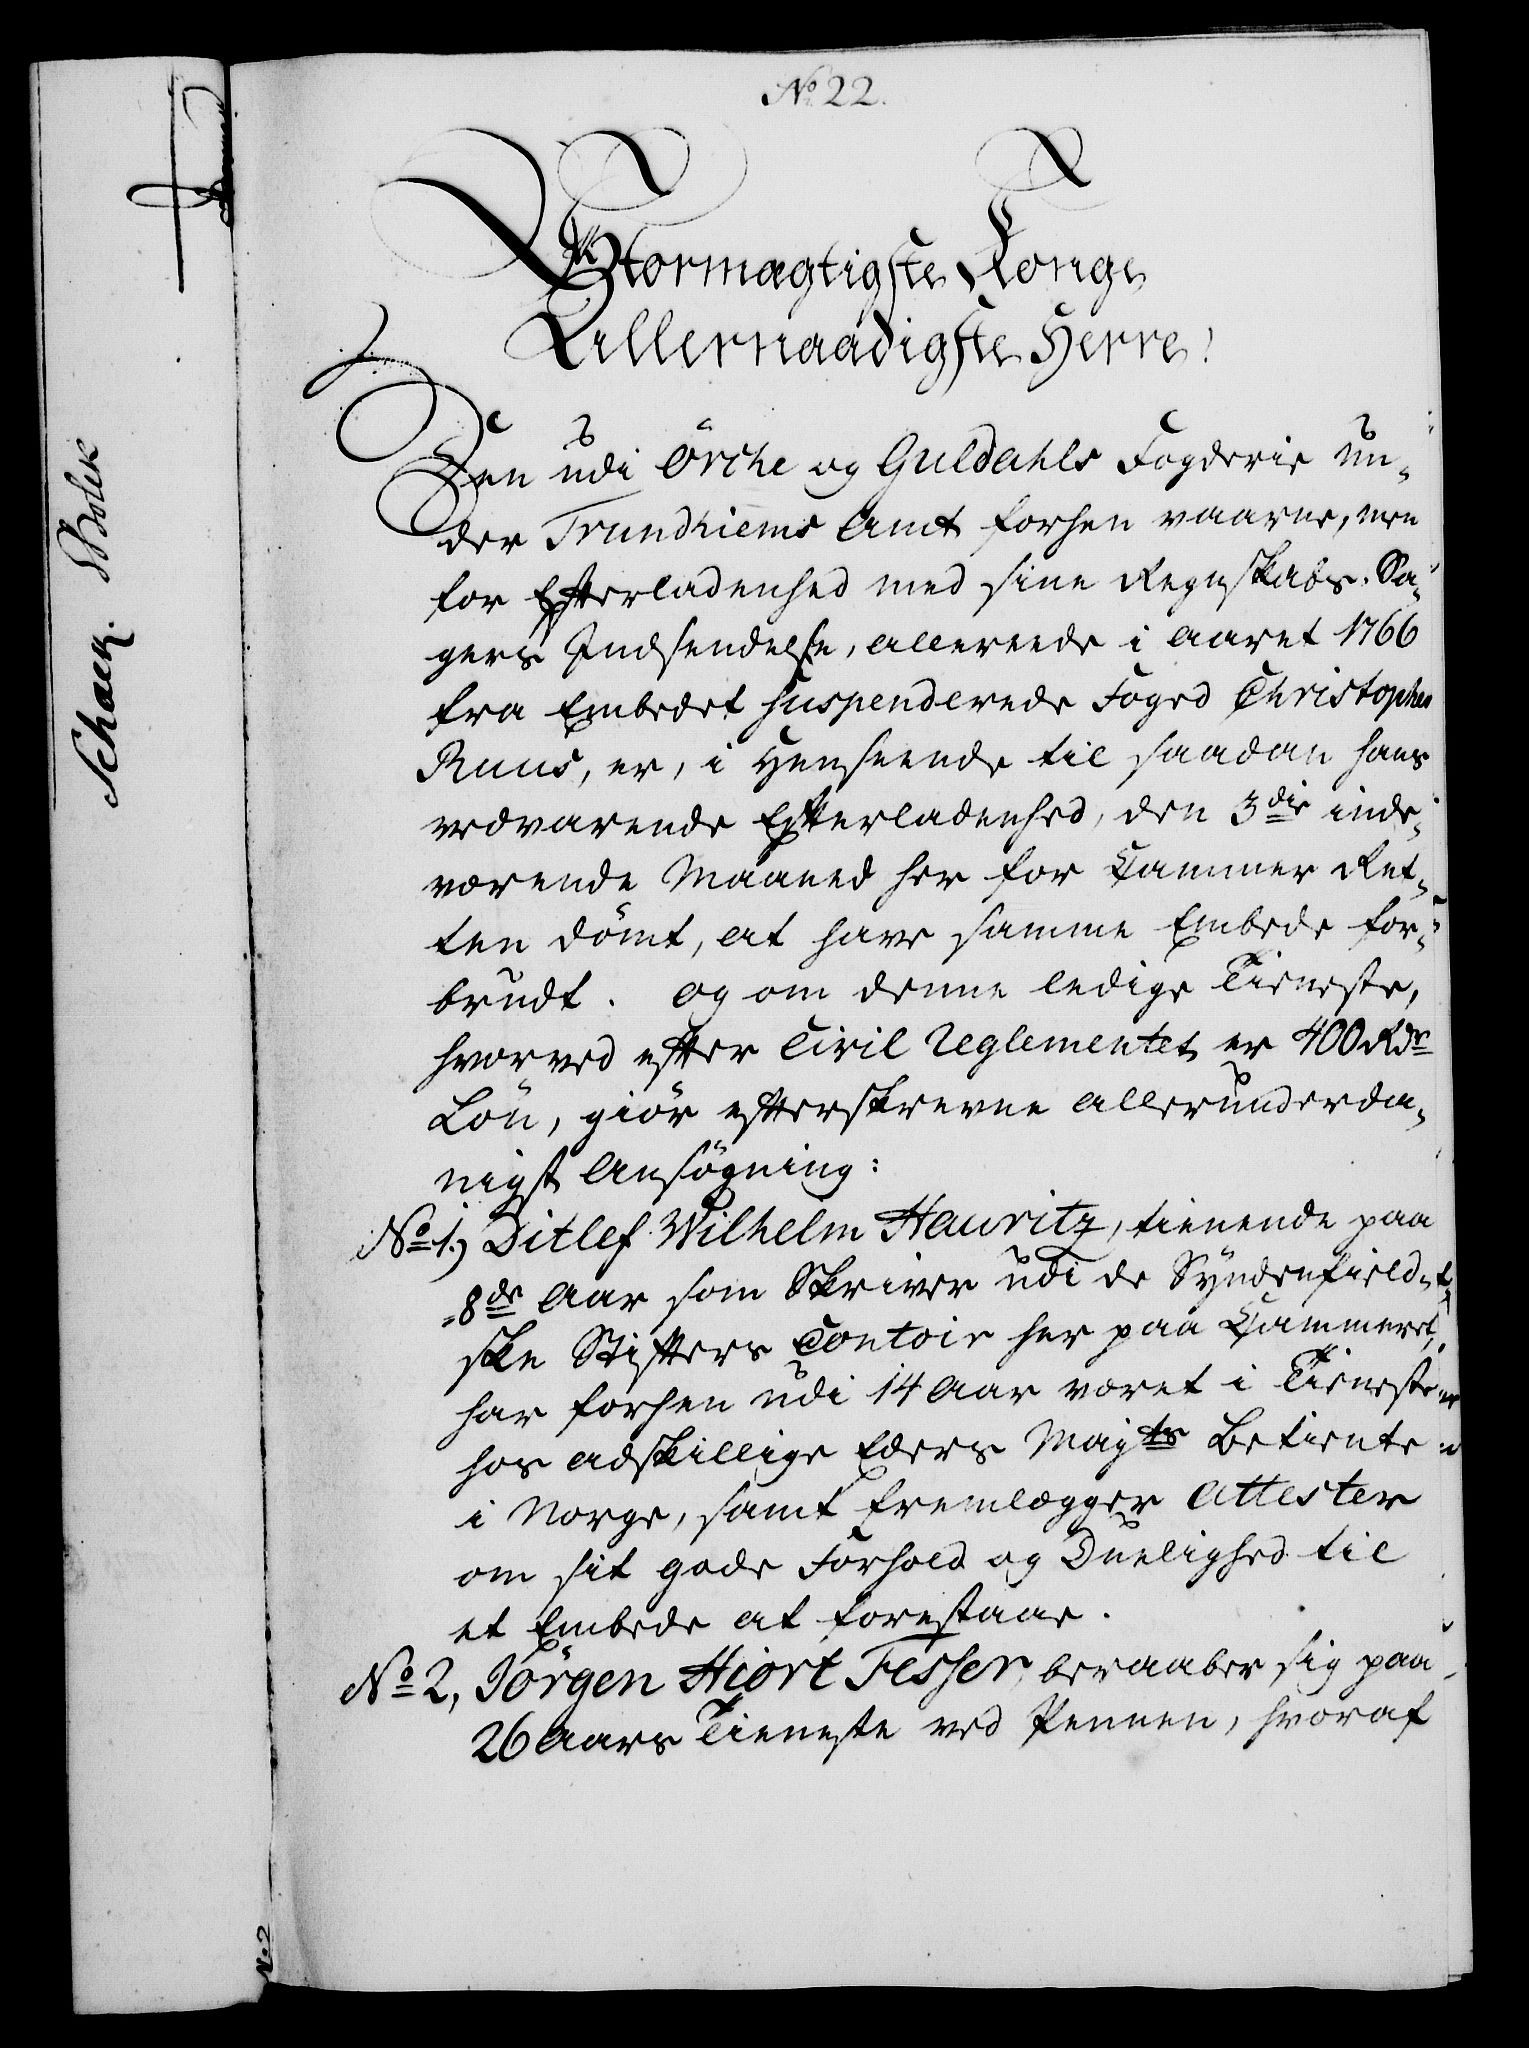 No 22.
Stormægtigste Konge
Allernaadigste Herre!
Den udi Örche og Guldahls Fogderie un-
der Trundhiems Amt forhen værne, men
for Efterladenhed med sine Regnskabs-Sa-
gers Indsendelse, allereede i Aaret 1766
fra Embedet suspenderede Foged Christopher
Ruus, er, i Henseende til saadan hans
vedvarende Efterladenhed, den 3die inde-
værende Maaned her for Cammer Ret-
ten dömt, at have samme Embede for-
brudt. Og om denne ledige Tieneste,
hvorved efter Civil Reglementet er 400 Rdr
Lön, giör efterskrevne allerunderda-
nigst Ansögning:
No 1.) Ditlef Wilhelm Hauritz, tienende paa
8de Aar som Skriver udi de Syndenfield-
ske Stifters Contoir her paa Cammeret,
har forhen udi 14 Aar været i Tieneste
hos adskillige Eders Majts Betiente
i Norge, samt fremlægger Attester
om sit gode Forhold og Duelighed til
et Embede at forestaae.
No 2, Jörgen Hiort Fesser, beraaber sig paa
26 Aars Tieneste ved Pennen, hvoraf
Schack.
No 2